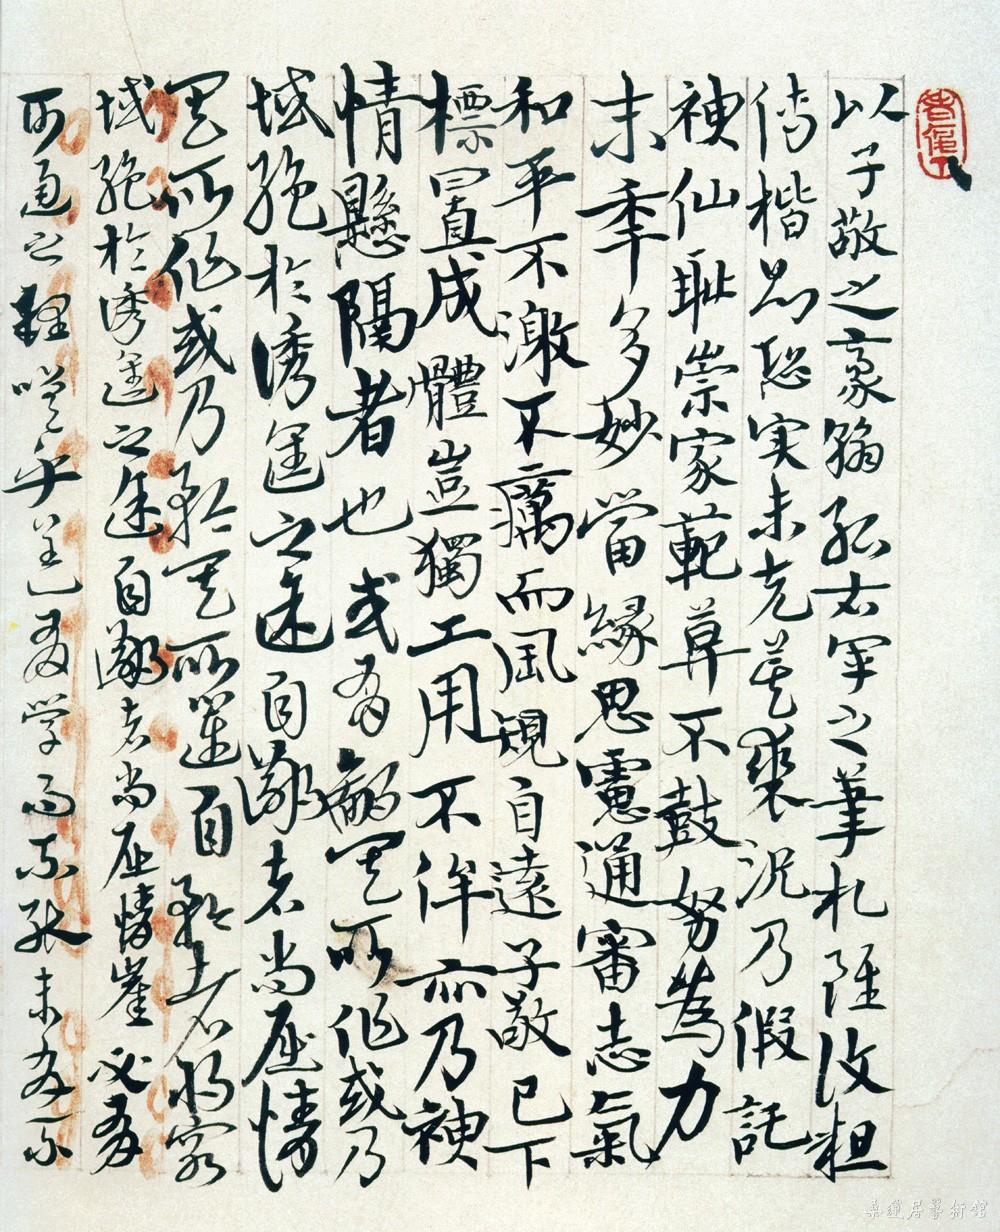 以子敬之豪翰紹右軍之筆札雖復粗
傳楷则恐实未克箕裘況乃假託
神仙耻崇家範莫不鼓努為力
末年多妙當緣思慮通審志氣
和平不激不厲而風規自遠子敬已下
標置成體豈獨工用不侔亦乃神
情懸隔者也或有鄙其所作或乃
域絕於誘進之途自鄙者尚屈情
其所作或乃矜其所運自矜者將窮
域絕於誘進之途自鄙者尚屈情崖必有
可通之理嗟乎盖有学而不能未有不
桑蓮居藝術館